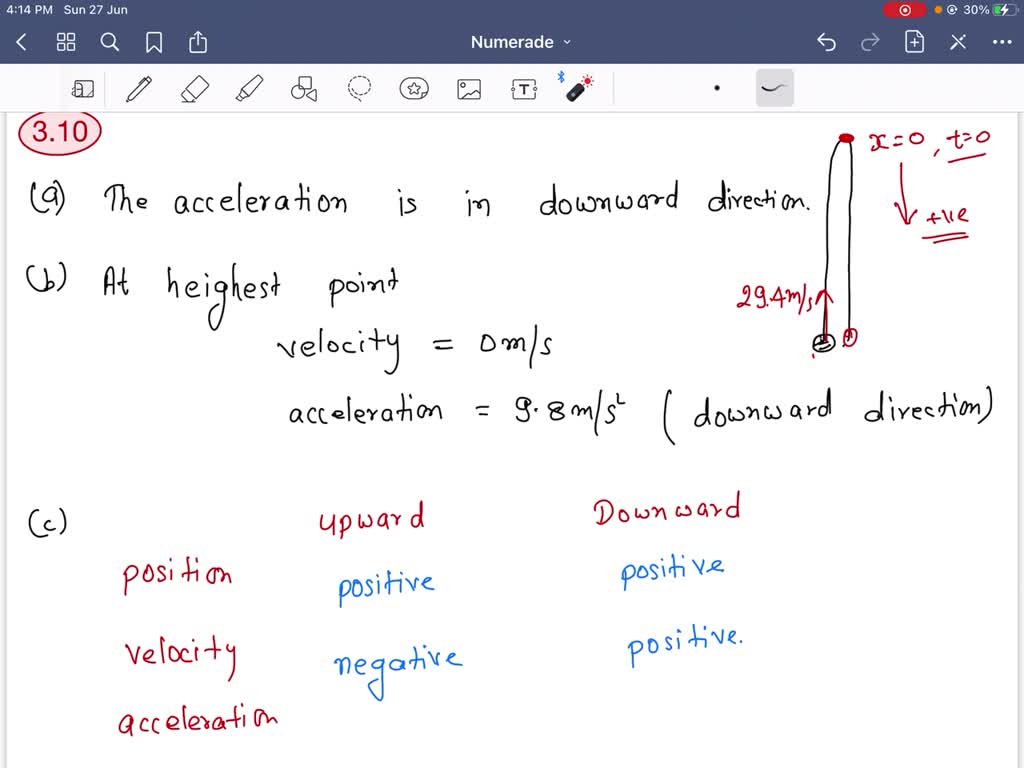 4:14 PM Sun 27 Jun
30%
Numerade
3.10
x=0, t=0
(a) The acceleration is in downward direction.
+ve
(b) At heighest point
29.4m/s
velocity = 0m/s
acceleration = 9.8m/s² (downward direction)
(c)
upward Downward
position positive positive
velocity negative positive.
acceleration